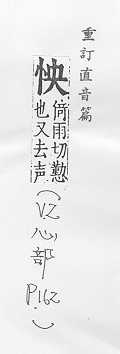 重訂直音篇
怏
倚兩切懟
也又去声
(VZ心部P162)